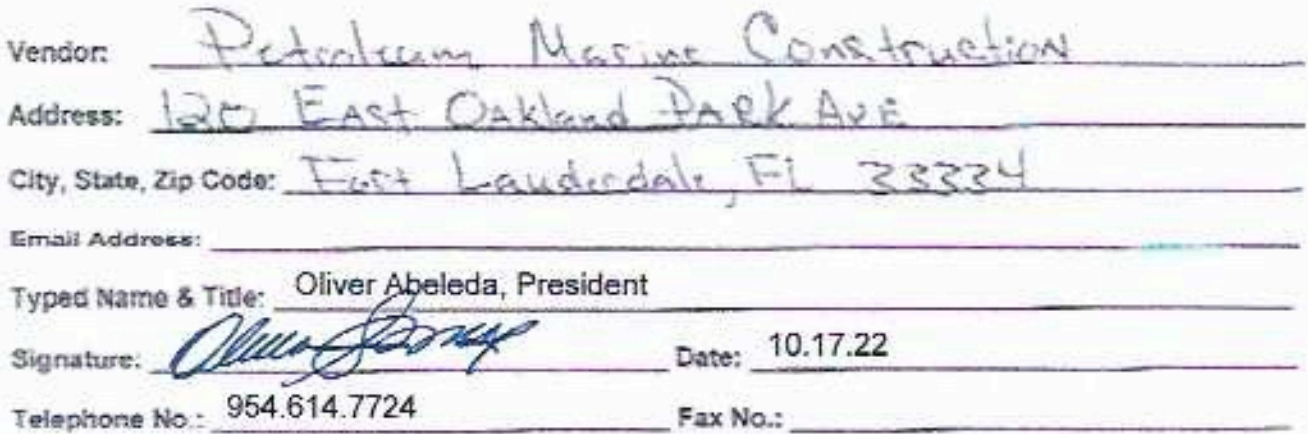 Vendor: Petroleum Marine Construction
Address: 120 East Oakland Park Ave
City, State, Zip Code: Fort Lauderdale, FL 33334
Email Address:
Typed Name & Title: Oliver Abeleda, President
Signature: Date: 10.17.22
Telephone No.: 954.614.7724 Fax No.: